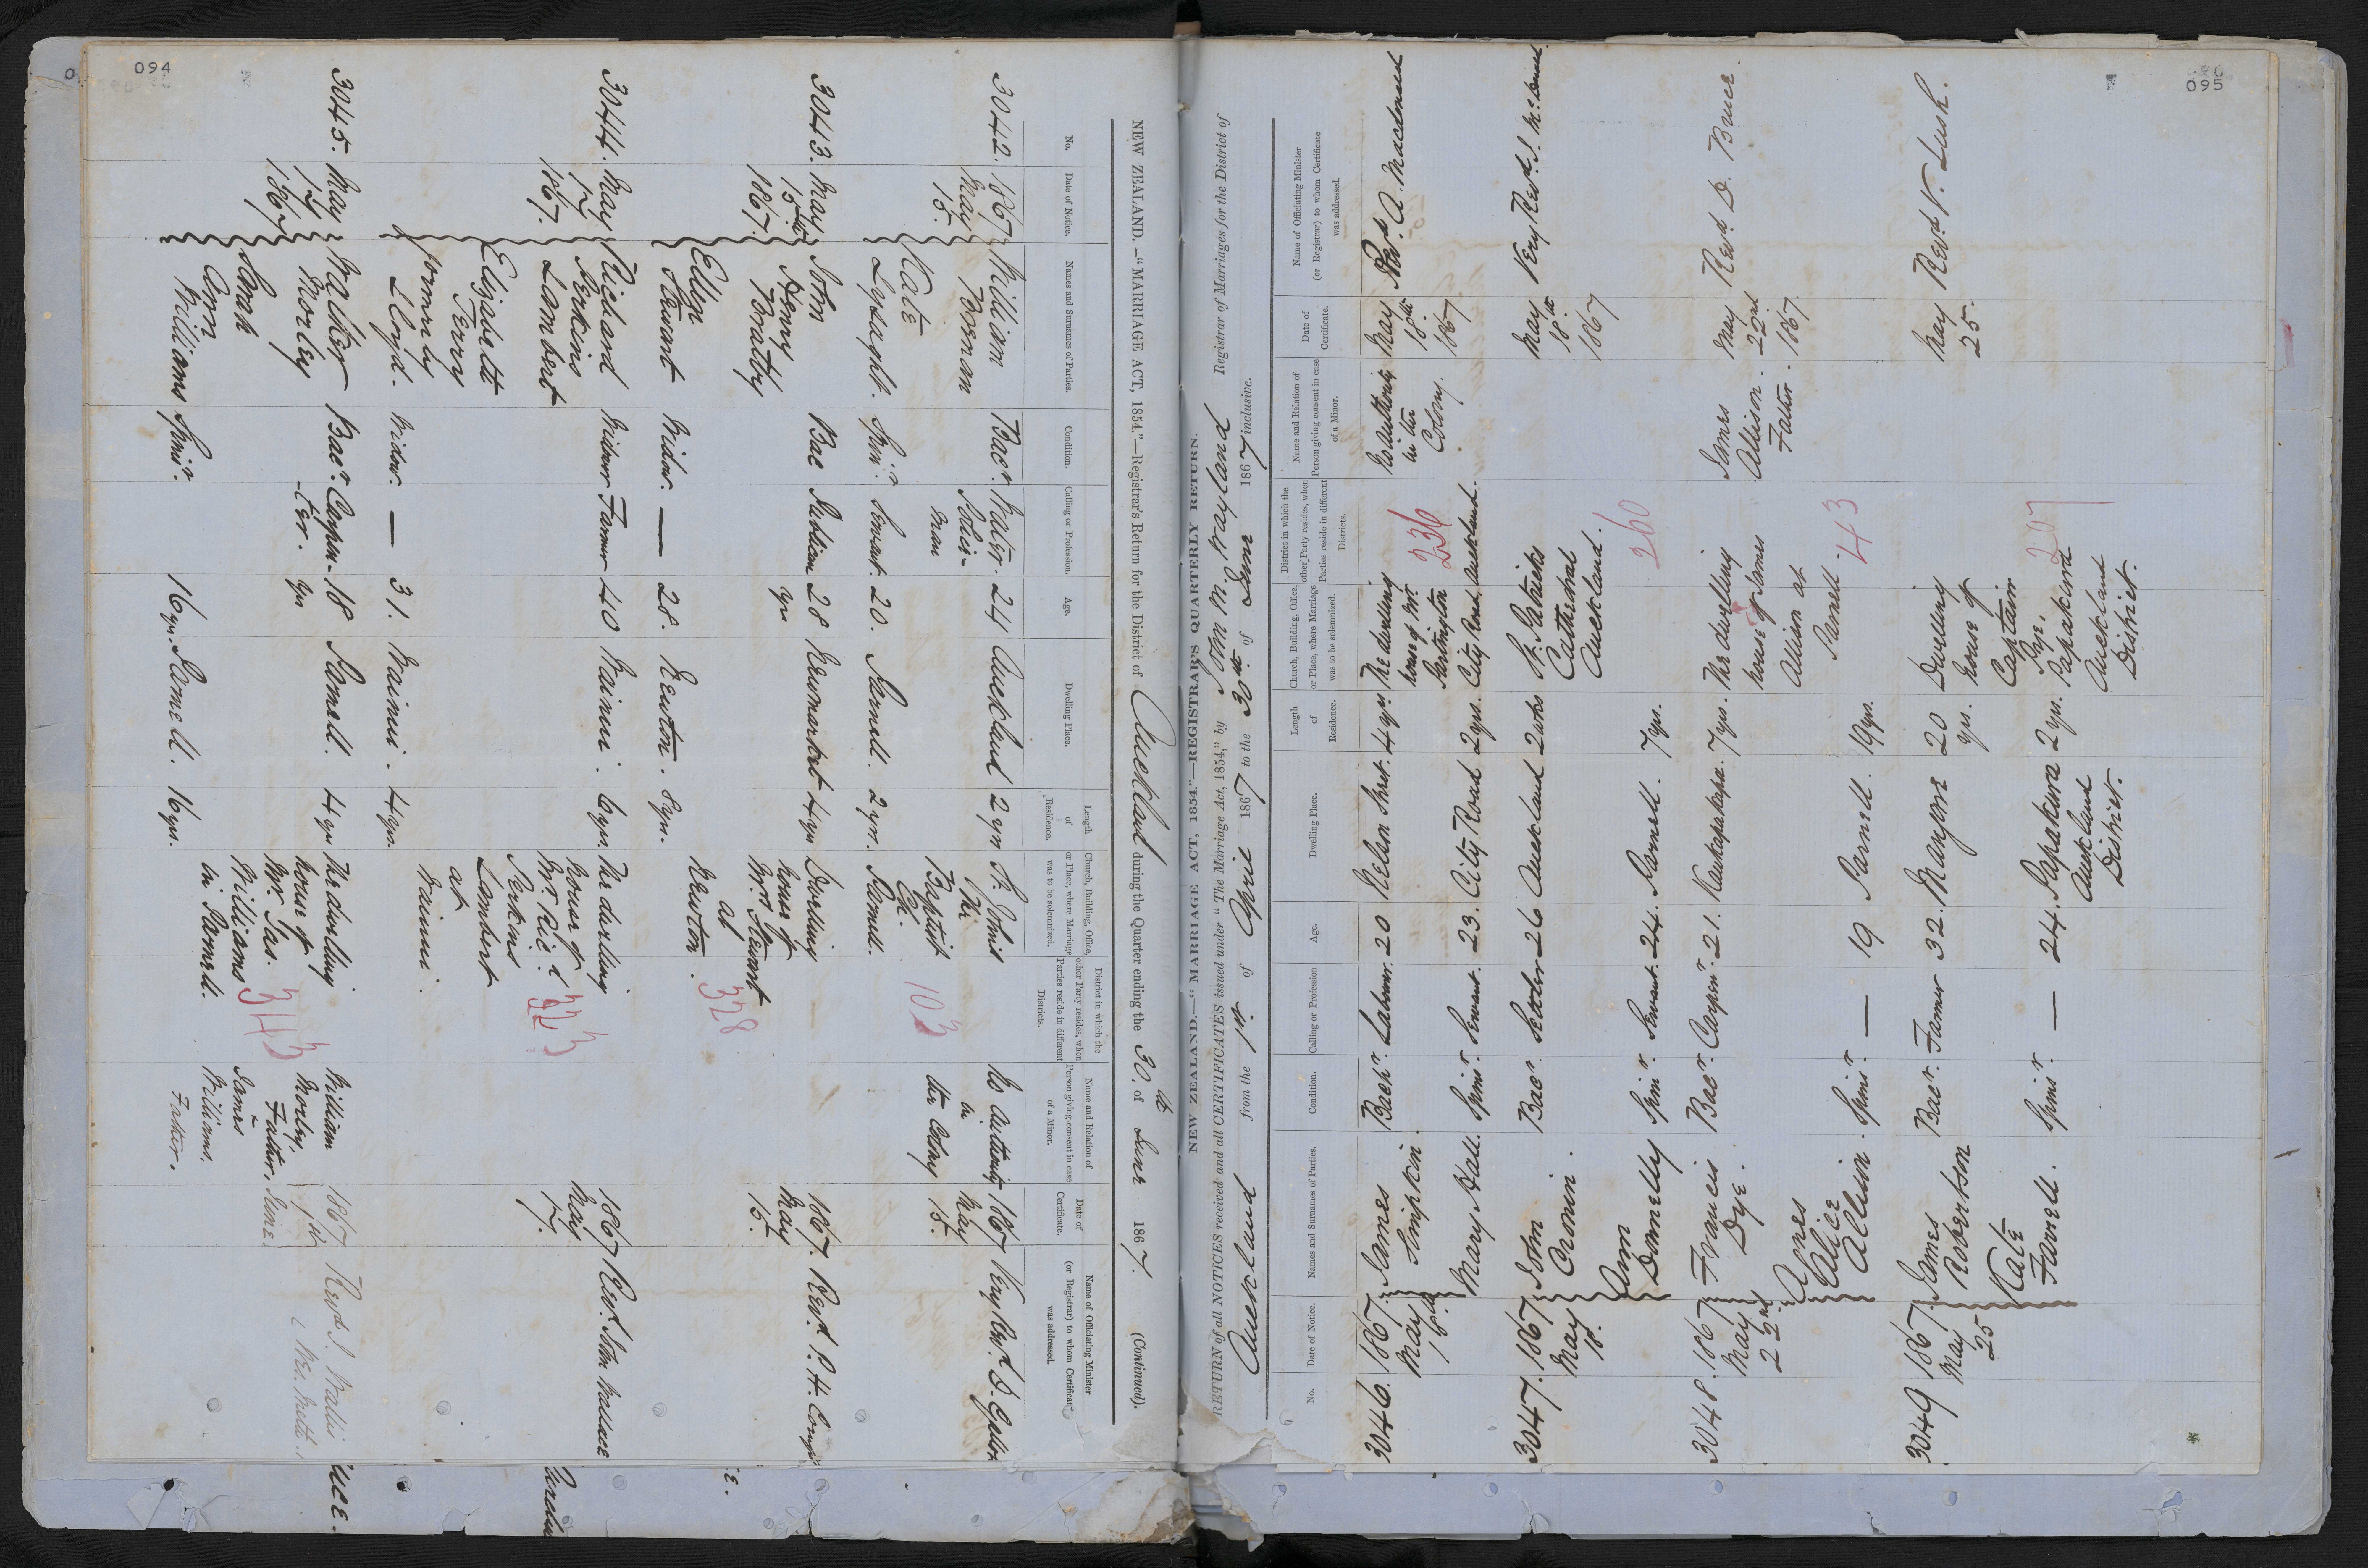 094
NEW ZEALAND.—"MARRIAGE ACT, 1854."—Registrar's Return for the District of Auckland during the Quarter ending the 30th of June 1867. (Continued).
No.
Date of Notice.
Names and Surnames of Parties.
Condition.
Calling or Profession.
Age.
Dwelling Place.
Length
of
Residence.
Church, Building, Office,
or Place, where Marriage
was to be solemnized.
District in which the
other Party resides, when
Parties reside in different
Districts.
Name and Relation of
Person giving consent in case
of a Minor.
Date of
Certificate.
Name of Officiating Minister
(or Registrar) to whom Certificate
was addressed.
3042.
1867
May
15.
William
Brenan
Bacr.
Police-
man
24
Auckland
2 yrs
St. John's
Baptist
Ch.
Parnell.
103
No authority
in
the Colony
1867
May
15.
Kate
Lysaght.
Spinr.
Servant.
20.
Parnell.
2 yrs.
3043.
May
15th
1867.
John
Henry
Bratty
Bac
Publican
28
yrs
Newmarket
4 yrs
Dwelling
house of
Mrs Stewart
at
Newton.
328
1867.
May
15.
Revd. P. H.
Ellen
Stewart
Widw.
—
28.
Newton.
8 yrs.
3044.
May
17
1867.
Richard
Perkins
Lambert
Widowr
Farmer
40
Wainui.
6 yrs.
The dwelling
house of
Mr. Ricd.
Perkins
Lambert
at
Wainui.
323
1867
May
17.
Revd. John Wallace
Elizabeth
Terry
formerly
Lloyd.
Widow.
—
31.
Wainui.
4 yrs.
3045.
May
17
1867
Walter
Morley
Bacr.
Carpen-
ter.
18
yrs
Parnell.
4 yrs
The dwelling
house of
Mr Jas.
Williams
in Parnell.
343
William
Morley,
Father,
James
Williams,
Father.
1867
1st
June
Revd J. Wallis
Sarah
Ann
Williams
Spinr.
16 yrs.
Parnell.
16 yrs.
095
NEW ZEALAND.—"MARRIAGE ACT, 1854."—REGISTRAR'S QUARTERLY RETURN.
RETURN of all NOTICES received and all CERTIFICATES issued under "The Marriage Act, 1854," by John M. Wayland Registrar of Marriages for the District of
Auckland from the 1st. of April 1867 to the 30th. of June 1867 inclusive.
No.
Date of Notice.
Names and Surnames of Parties.
Condition.
Calling or Profession
Age.
Dwelling Place.
Length
of
Residence.
Church, Building, Office,
or Place, where Marriage
was to be solemnized.
District in which the
other Party resides, when
Parties reside in different
Districts.
Name and Relation of
Person giving consent in case
of a Minor.
Date of
Certificate.
Name of Officiating Minister
(or Registrar) to whom Certificate
was addressed.
3046.
1867.
May
18th
James
Simpkin.
Bachr.
Labourer.
20
Nelson Street.
4 yrs
The dwelling
house of Mr.
Partington
City Road, Auckland.
236
No authority
in the
Colony.
May
18th
1867.
Revd. A. Macdonald
Mary Hall.
Spinsr.
Servant.
23.
City Road
2 yrs.
3047.
1867
May
18.
John
Cronin.
Bacr.
Settler
26
Auckland
2 wks
St. Patricks
Cathedral
Auckland.
260
May
18th
1867
Very Revd. J. McDonald.
Ann
Donnelly
Spinr.
Servant.
24.
Parnell.
7 yrs.
3048.
1867
May
22nd
Francis
Dye.
Bacr.
Carpenr.
21.
Kaukapakapa.
7 yrs.
The dwelling
house of James
Allison at
Parnell.
43
James
Allison.
Father.
May
22nd
1867.
Revd. D. Bruce.
Agnes
Alice
Allison.
Spinsr.
—
19
Parnell.
19 yrs.
3049
1867.
May
25
James
Robertson
Bacr.
Farmer
32.
Mangere
20
yrs.
Dwelling
house of
Captain
Papakura
Auckland
District.
207
May
25.
Revd V. Lush.
Kate
Farrell.
Spinsr.
—
24.
Papakura
Auckland
District.
2 yrs.